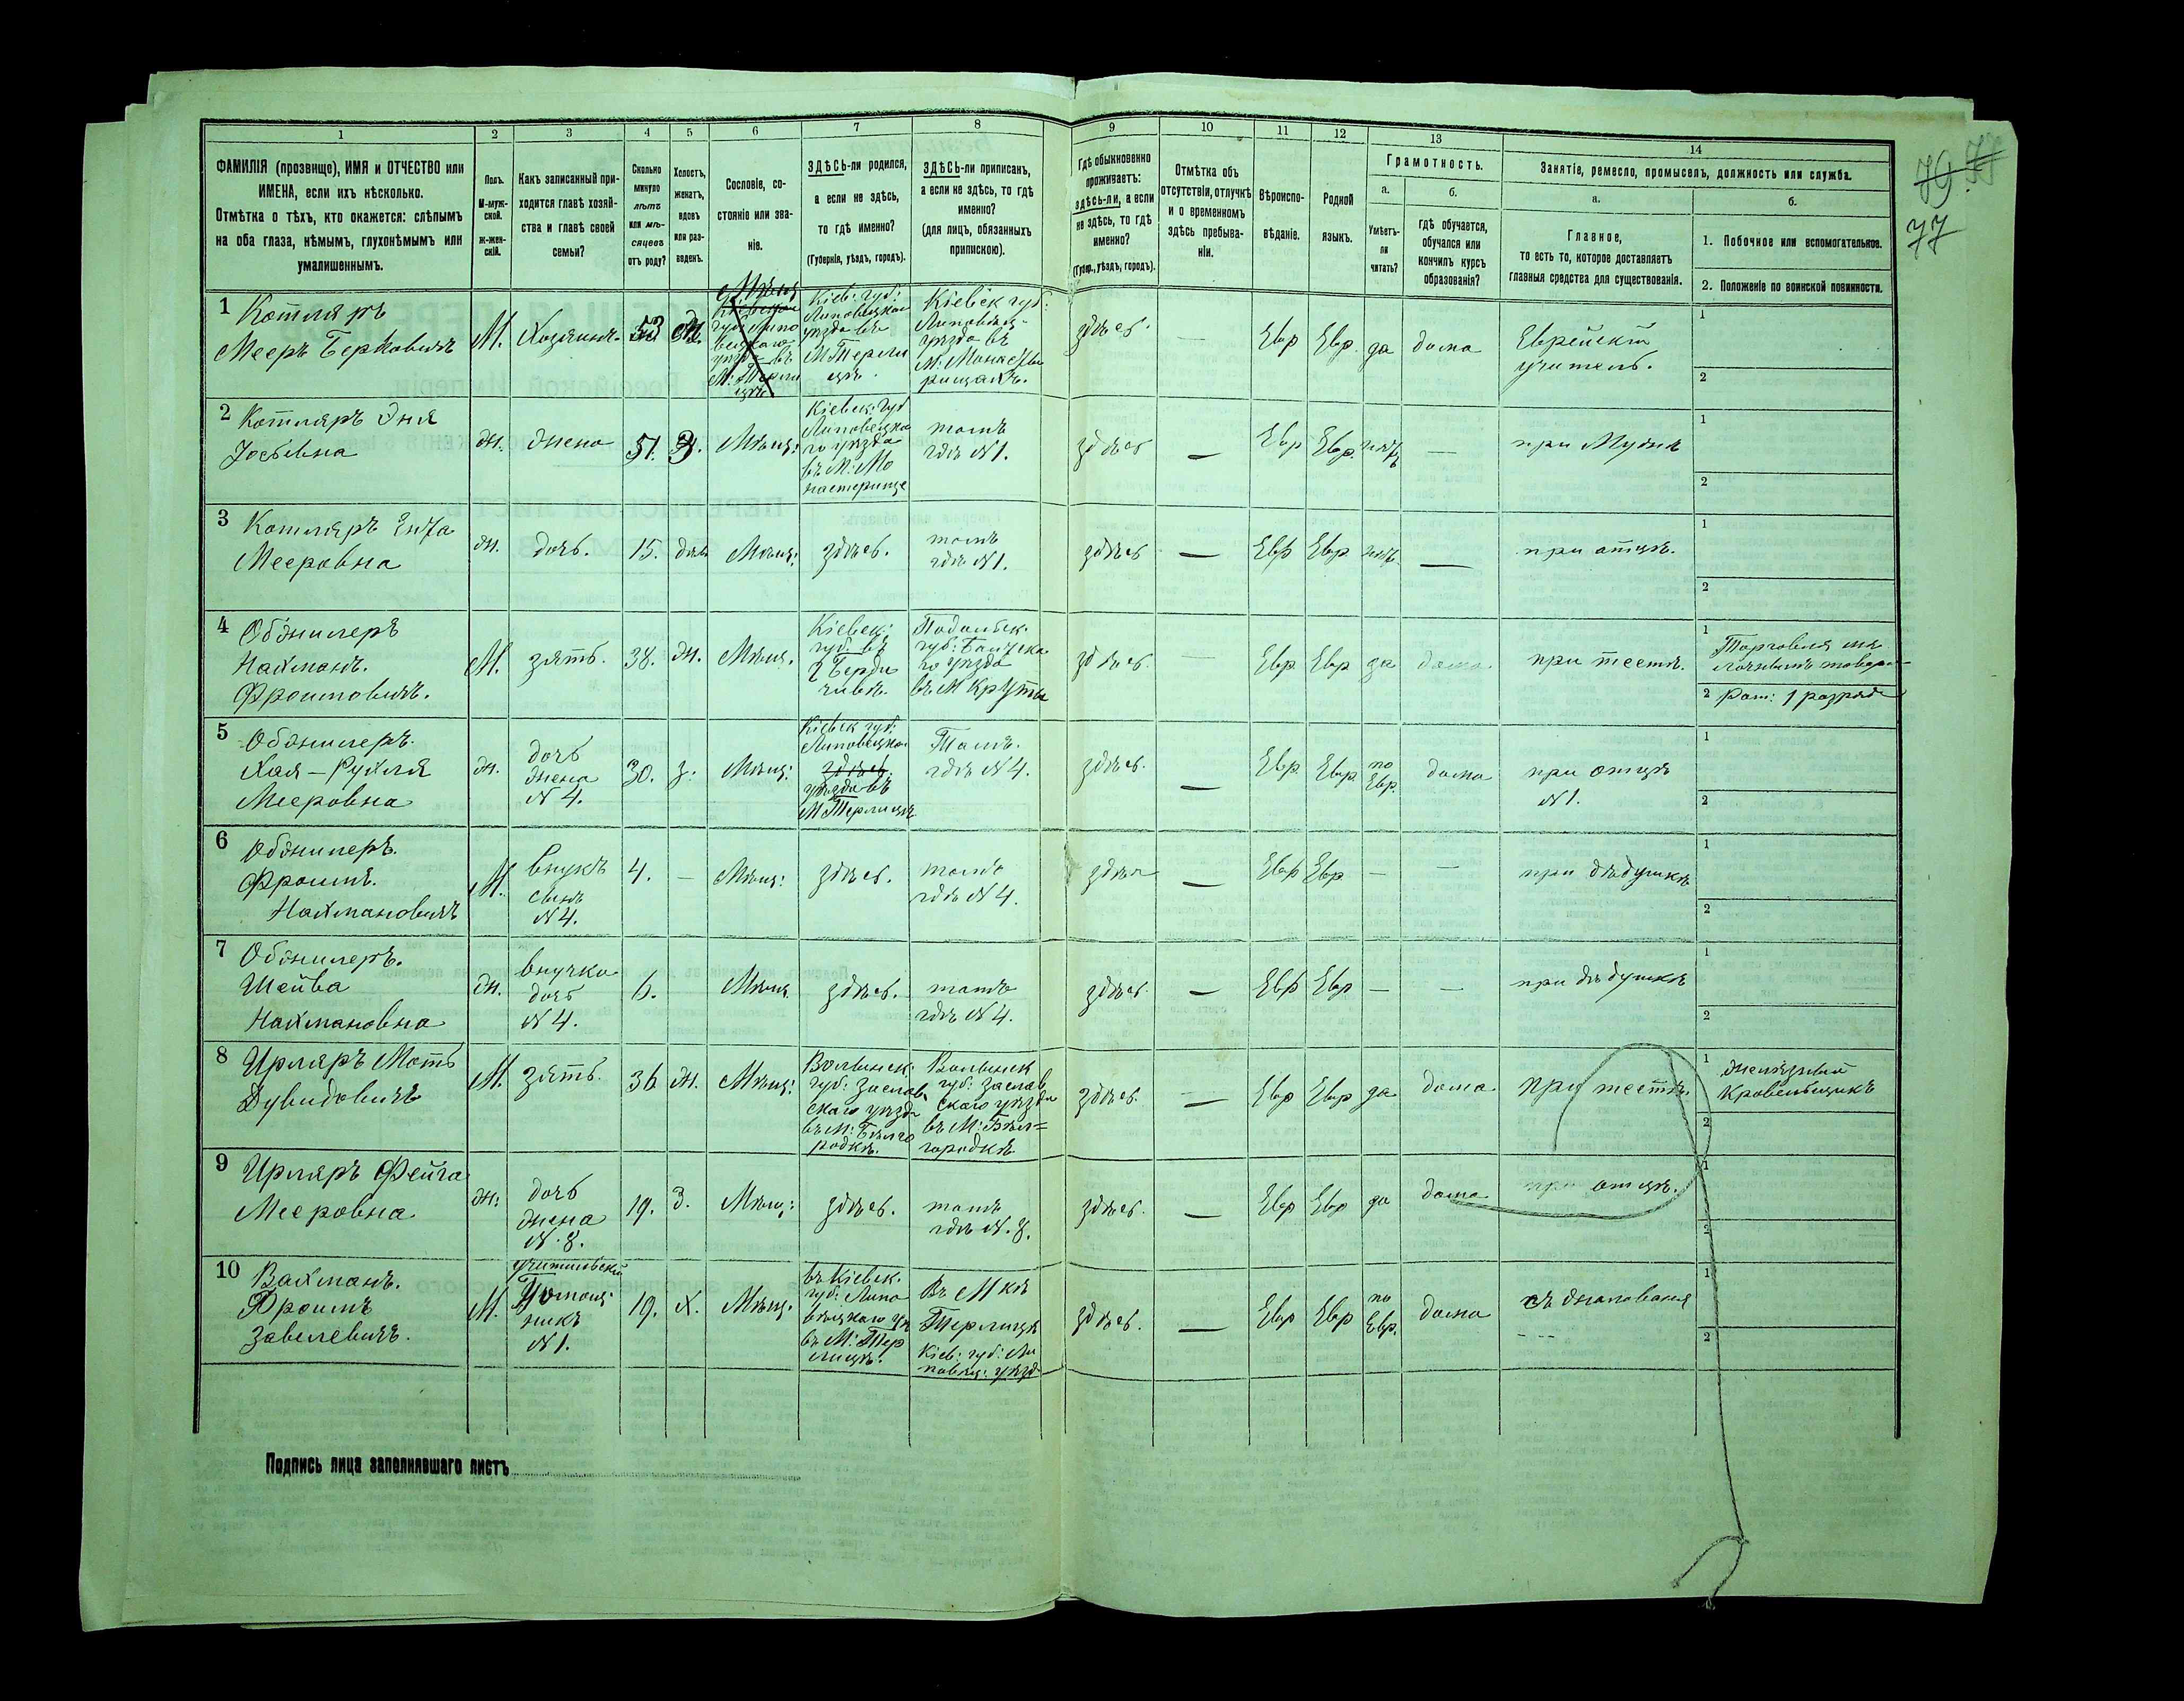 79 75
77
1
2
3
4
5
6
7
8
9
10
11
12
13
14
ФАМИЛІЯ (прозвище), ИМЯ и ОТЧЕСТВО или
ИМЕНА, если ихъ нѣсколько.
Отмѣтка о тѣхъ, кто окажется: слѣпымъ
на оба глаза, нѣмымъ, глухонѣмымъ или
умалишеннымъ.
Полъ.
М-муж-
ской.
ж-жен-
скій.
Какъ записанный при-
ходится главѣ хозяй-
ства и главѣ своей
семьи?
Сколько
минуло
лѣтъ
или мѣ-
сяцевъ
отъ роду?
Холостъ,
женатъ,
вдовъ
или раз-
веденъ.
Сословіе, со-
стояніе или зва-
ніе.
ЗДѢСЬ-ли родился,
а если не здѣсь,
то гдѣ именно?
(Губернія, уѣздъ, городъ).
ЗДѢСЬ-ли приписанъ,
а если не здѣсь, то гдѣ
именно?
(для лицъ, обязанныхъ
припискою).
Гдѣ обыкновенно
проживаетъ:
здѣсь-ли, а если
не здѣсь, то гдѣ
именно?
(Губер., уѣздъ, городъ).
Отмѣтка объ
отсутствіи, отлучкѣ
и о временномъ
здѣсь пребыва-
ніи.
Вѣроиспо-
вѣданіе.
Родной
языкъ.
Грамотность.
а.
Умѣетъ-
ли
читать?
б.
гдѣ обучается,
обучался или
кончилъ курсъ
образованія?
Занятіе, ремесло, промыселъ, должность или служба.
а.
Главное,
то есть то, которое доставляетъ
главныя средства для существованія.
б.
1. Побочное или вспомогательное.
2. Положеніе по воинской повинности.
1 Котляръ
Мееръ Берковичъ
М.
Хозяинъ
53
Ж.
Мѣщ
Кіев: губ:
Липовецкаго
уѣзда въ
М Терли
цѣ.
Кіевск губ:
Липовец-
уѣзда въ
М: Монасты
рищахъ.
здѣсь.
Евр
Евр.
да
дома
Еврейскій
учитель.
1
2
2 Котляръ Эня
Іосьевна
Ж.
Жена
51.
З.
Мѣщ:
Кіевск: губ
Липовецка
го уѣзда
въ М: Мо
настерище
тамъ
гдѣ N 1.
здѣсь
—
Евр
Евр.
—
при Мужѣ
1
2
3 Котляръ Ента
Мееровна
Ж.
дочь.
15.
дѣв
Мѣщ:
здѣсь.
тамъ
гдѣ N 1.
здѣсь
—
Евр
Евр
—
при отцѣ.
1
2
4 Обжилеръ
Нахманъ.
Фроимовичъ.
М.
зять.
38.
Ж.
Мѣщ.
Кіевск:
губ: въ
Г Берди
чивѣ.
Подольск.
губ: Балтска
го уѣзда
въ М Круты
здѣсь.
Евр
Евр
да
дома
при тестѣ.
1
Торговля мѣ
лочнымъ товаро-
2 Рат: 1 разряда
5 Обжилеръ.
Хая-Рухля
Мееровна
Ж.
дочь
Жена
N 4.
30.
З.
Мѣщ:
Кіевск губ:
Липовецка
здѣсь.
уѣзда въ
М Терлицѣ
Тамъ.
гдѣ N 4.
здѣсь.
—
Евр.
Евр.
по
Евр.
дома
при отцѣ
N 1.
1
2
6 Обжилеръ.
Фроимъ.
Нахмановичъ
М.
внукъ
сынъ
N 4.
4.
—
Мѣщ:
здѣсь.
тамъ
гдѣ N 4.
—
Евр
Евр
—
—
при дѣдушкѣ
1
2
7 Обжилеръ.
Шейва
Нахмановна
Ж.
внучка
дочь
N 4.
6.
Мѣщ
здѣсь.
тамъ
гдѣ N 4.
здѣсь.
—
Евр
Евр
—
—
при дѣдушкѣ
1
2
8 Ирляръ Моть
Дувидовичъ
М.
зять.
36
Ж.
Мѣщ:
Волынск:
губ: Заслав
скаго уѣзда
въ М: Бѣлго
родкѣ.
Волынск
губ: Заслав
скаго уѣзда
въ М: Бѣл=
городкѣ
здѣсь.
—
Евр
Евр
да
дома.
при тестѣ.
1
Желѣзный
Кровельщикъ
2
9 Ирляръ Фейга
Мееровна
Ж:
дочь
Жена
N. 8.
19.
З.
Мѣщ:
здѣсь.
тамъ
гдѣ N. 8.
здѣсь.
—
Евр
Евр
да
дома
при отцѣ.
1
2
10 Вахманъ.
Фроимъ
Завелевичъ.
М.
N 1.
19.
Х.
Мѣщ.
въ Кіевск.
губ: Липо
вецкаго уѣ
въ М: Тер
лицѣ.
Въ М кѣ
Терлицѣ
Кіев: губ: Ли
повец: уѣзд
здѣсь.
—
Евр
Евр
по
Евр.
дома
съ жалованія
1
2
Подпись лица заполнявшаго листъ